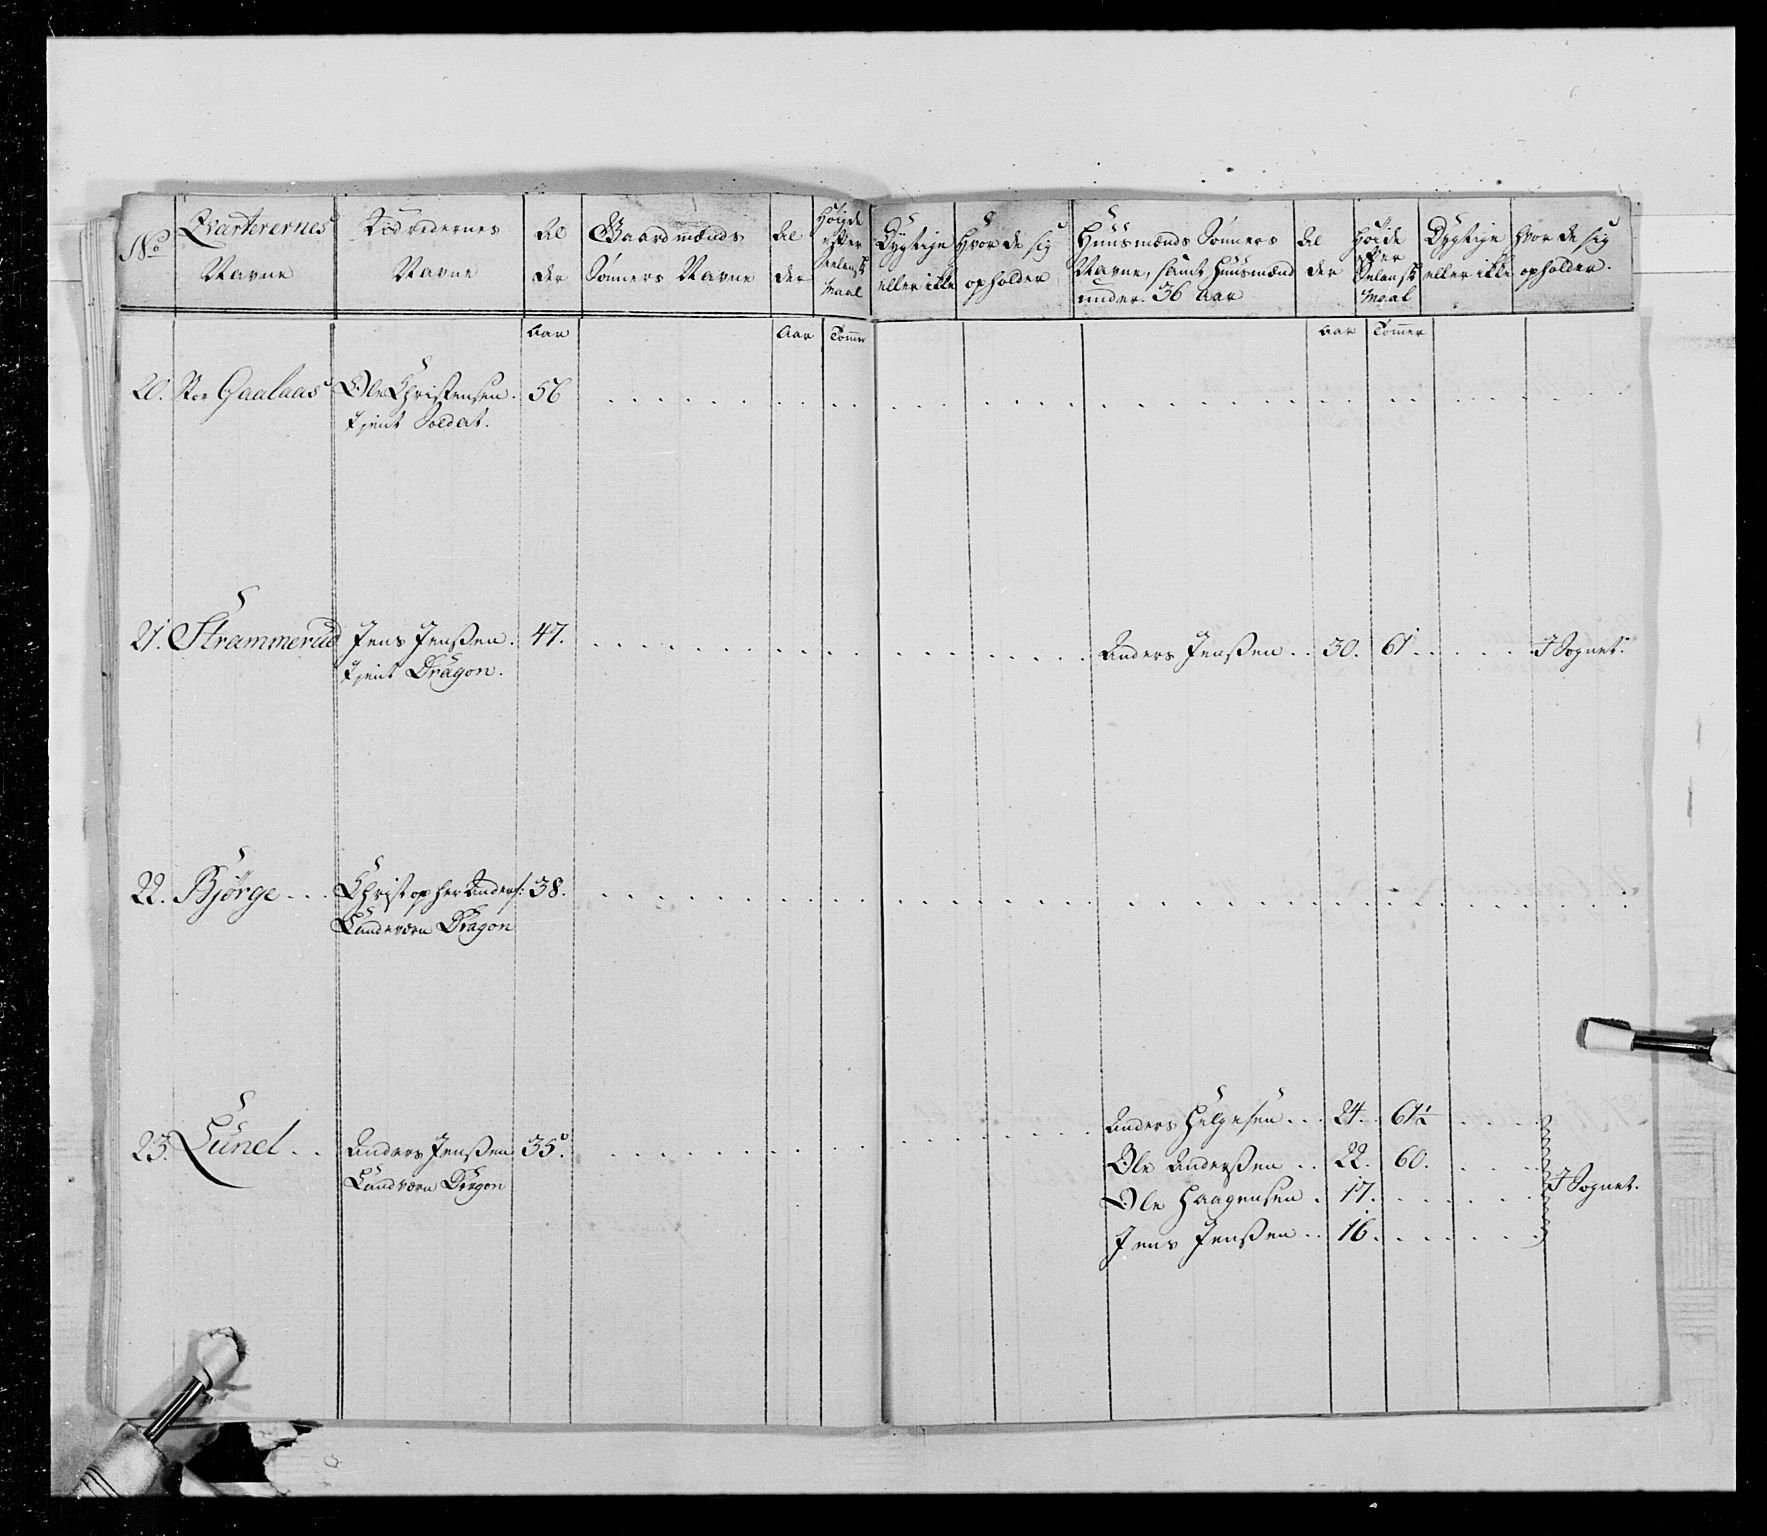 No
Qvarterernes
Navne
Navne
Al
der
Gaardmænds
Sønners Navne
Al
der
Høyde
efter
Selansk
Maal
Dygtige
eller ikke
Hvor de sig
opholder
Huusmænds Sønners
Navne, samt Huusmænd
under 36 Aar
Al
der
Høide
efter
Selansk
Maal
Dygtige
eller ikke
hvor de sig
opholder.
Aar
Aar
Tommer
Aar
Tommer
20. Stor Gaalaas Ole Christensen. 56
Tjent Soldat.
21. Strammerud Jens Jenssen. 47. Anders Jenssen .. 30. 61. I Sognet.
Tjent Dragon.
22. Bjørge ... Christopher Anders: 38.
Landværn Dragon
23. Lunel .. Anders Jenssen 35.
Landværn Dragon
Anders Helgesen ... 24. 61½
Ole Anderssen .. 22. 60.
Ole Haagensen . 17.
Jens Jenssen .. 16.
I Sognet.